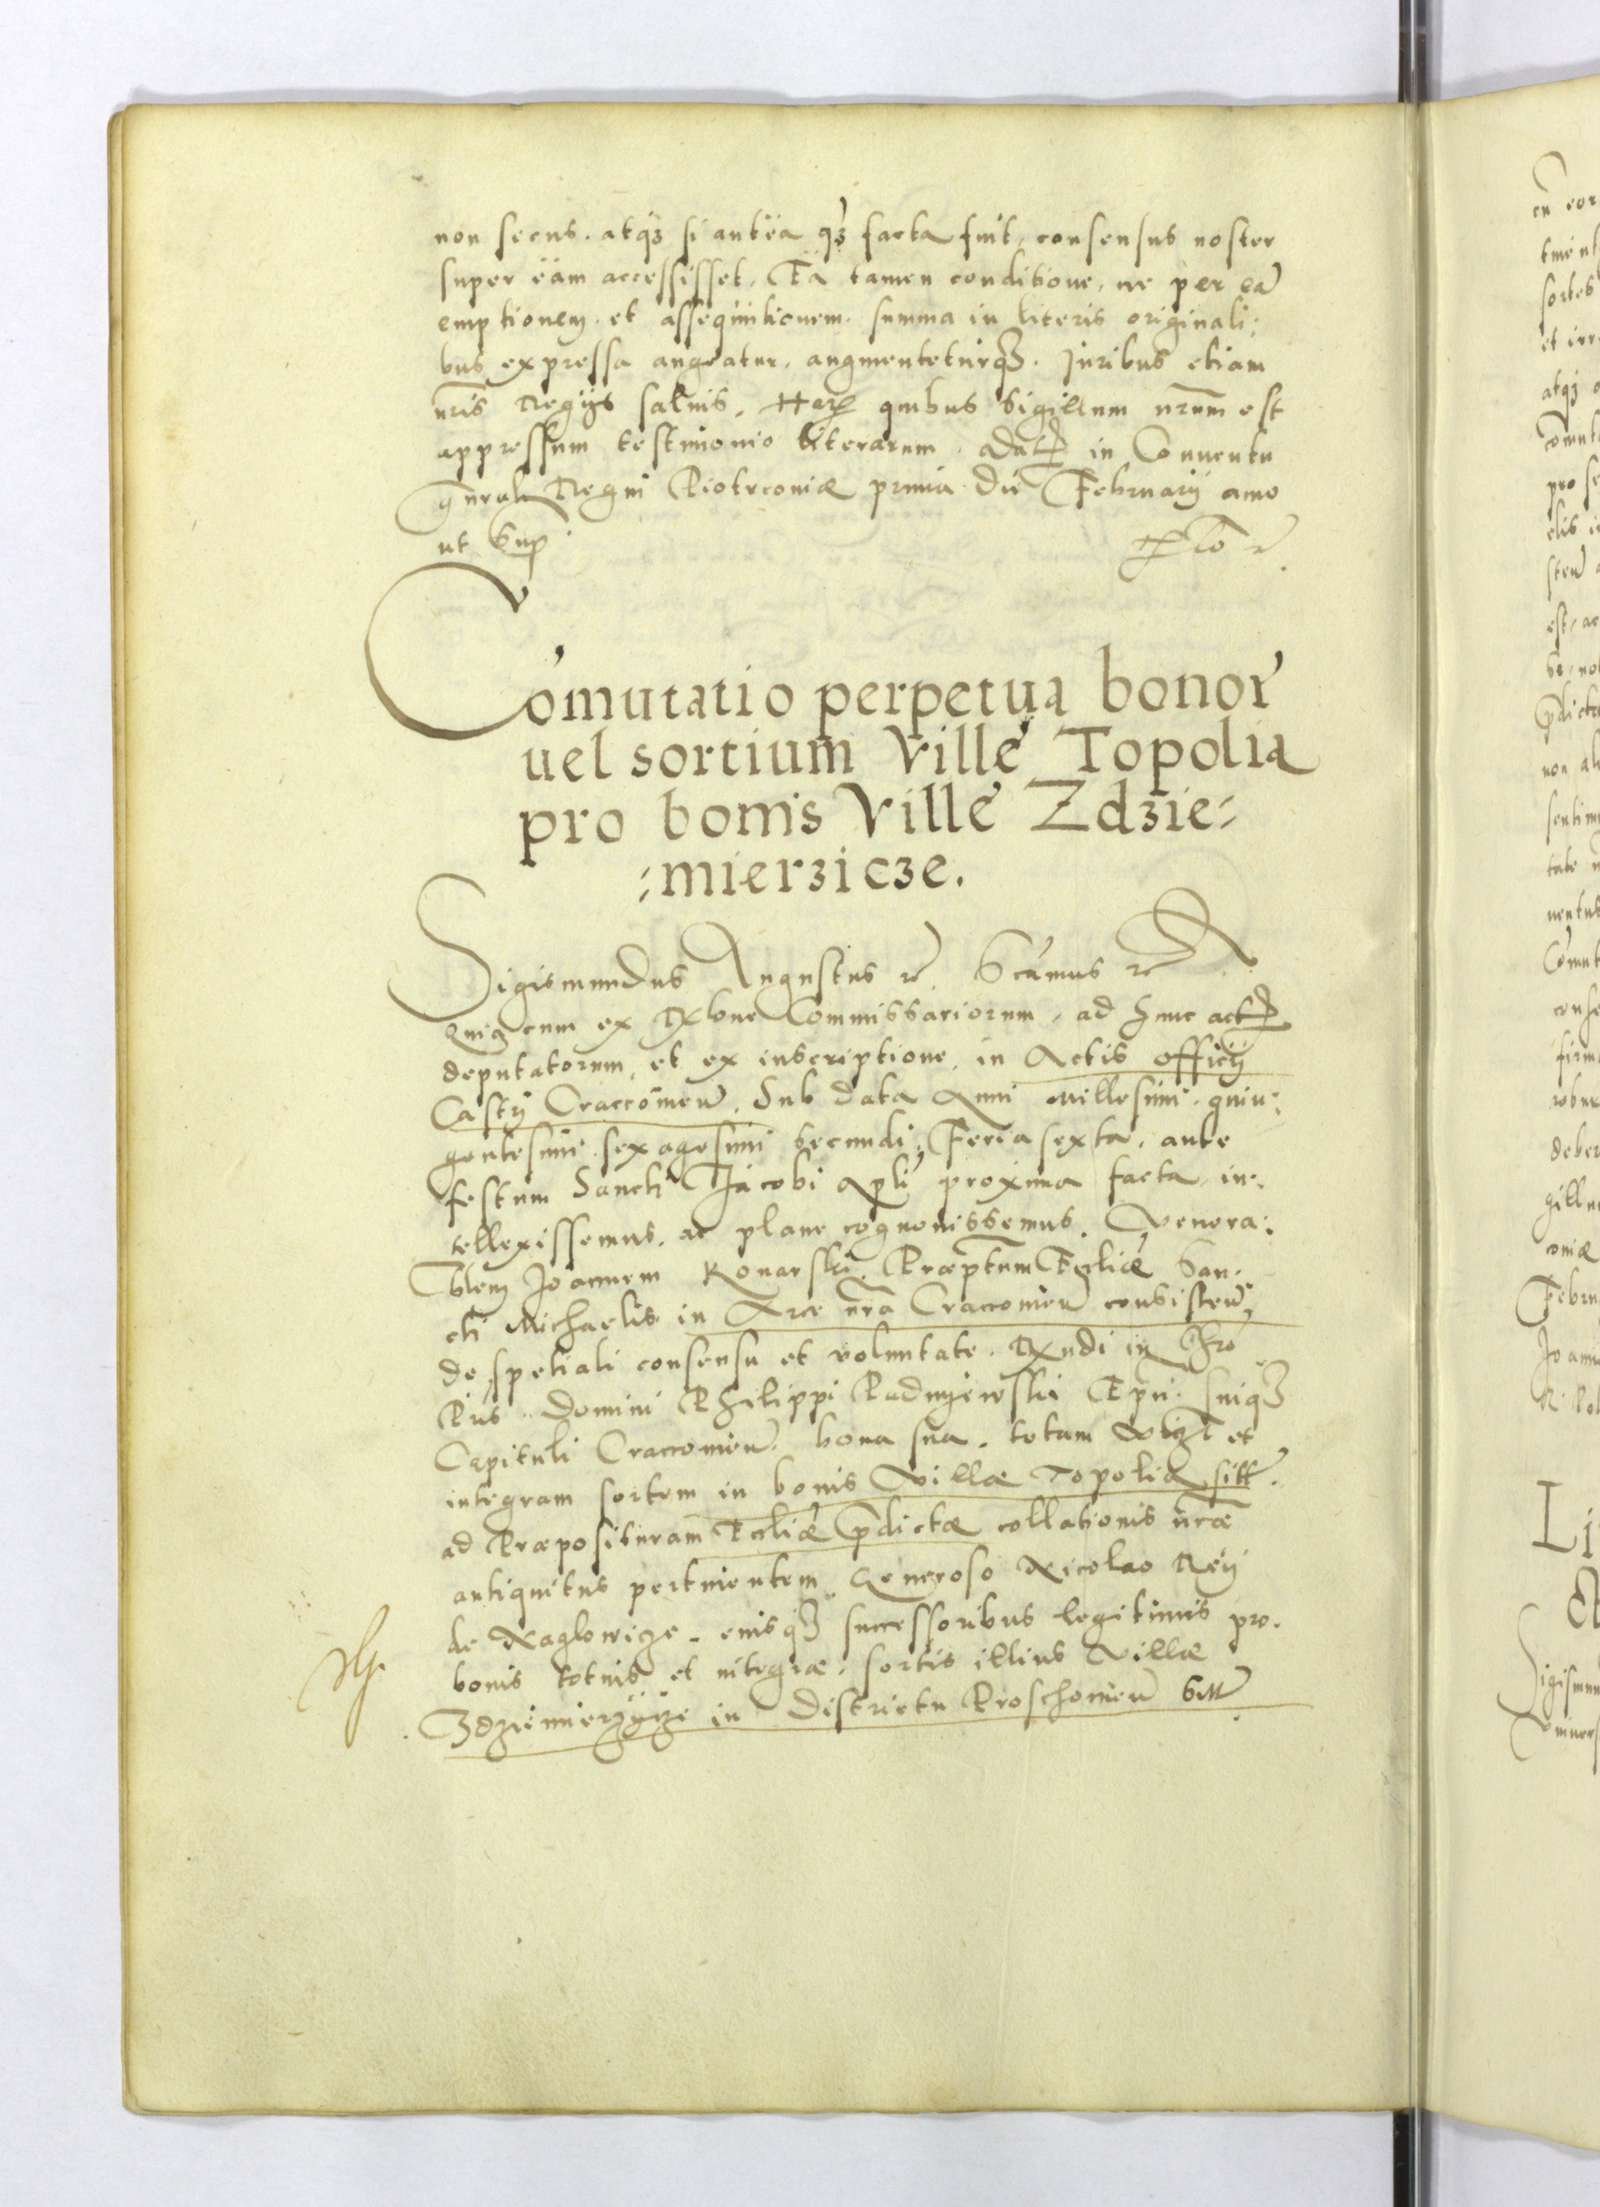 non secus. atq3 si antea q3 facta fuit, consensus noster
super eam accessisset. Ea tamen conditione, ne per eā
emptionem. et assequutionem. summa in literis originali:
bus expressa augeatur, augmenteturq3. Iuribus etiam
nr̄is Regijs saluis. Har quibus Sigillum nr̄um est
appressum testimonio literarum. Dat in Conuentu
gn̄rali Regni Piotrconiæ prima die Februarij anno
ut Sup
Cōmutatio perpetua bonor
uel sortium Villę Topolia
pro bonis Villę Zdzie=
=mierzicze.
Sigismundus Augustus rc̄. Scāmus rc̄
Quia cum ex Rc̄one Commissariorum, ad hunc act
deputatorum, et ex inscriptione, in Actis officij
Castrj Craccouien̄. Sub data Anni Millesimi. quin:
gentesimi. sexagesimi secundi: Feria sexta, ante
festum Sancti Jacobi Apli proxima facta, in:
tellexissemus. ac plane cognouissemus. Venera:
bilem Joannem Konarski, Præptum Ecclię San:
cti Michaelis in Arce nr̄a Craccouien̄ consisten̄.
de spetiali consensu et voluntate. Rndi in Chro
Pris. Domini Philippi Padnyewski Epi. suiq3
Capituli Craccouien̄. bona sua. totam vicz et
integram sortem in bonis Villæ Topolia sitt.
ad Præposituram Eccliæ p̄dictæ collationis nr̄æ
antiquitus pertinentem Generoso Nicolao Reij
de Naglowicze. eiusq3 successoribus legitimis pro.
bonis totius et integræ. sortis illius Villæ
Zdziemierzycze in Districtu Proschouien̄ sitt